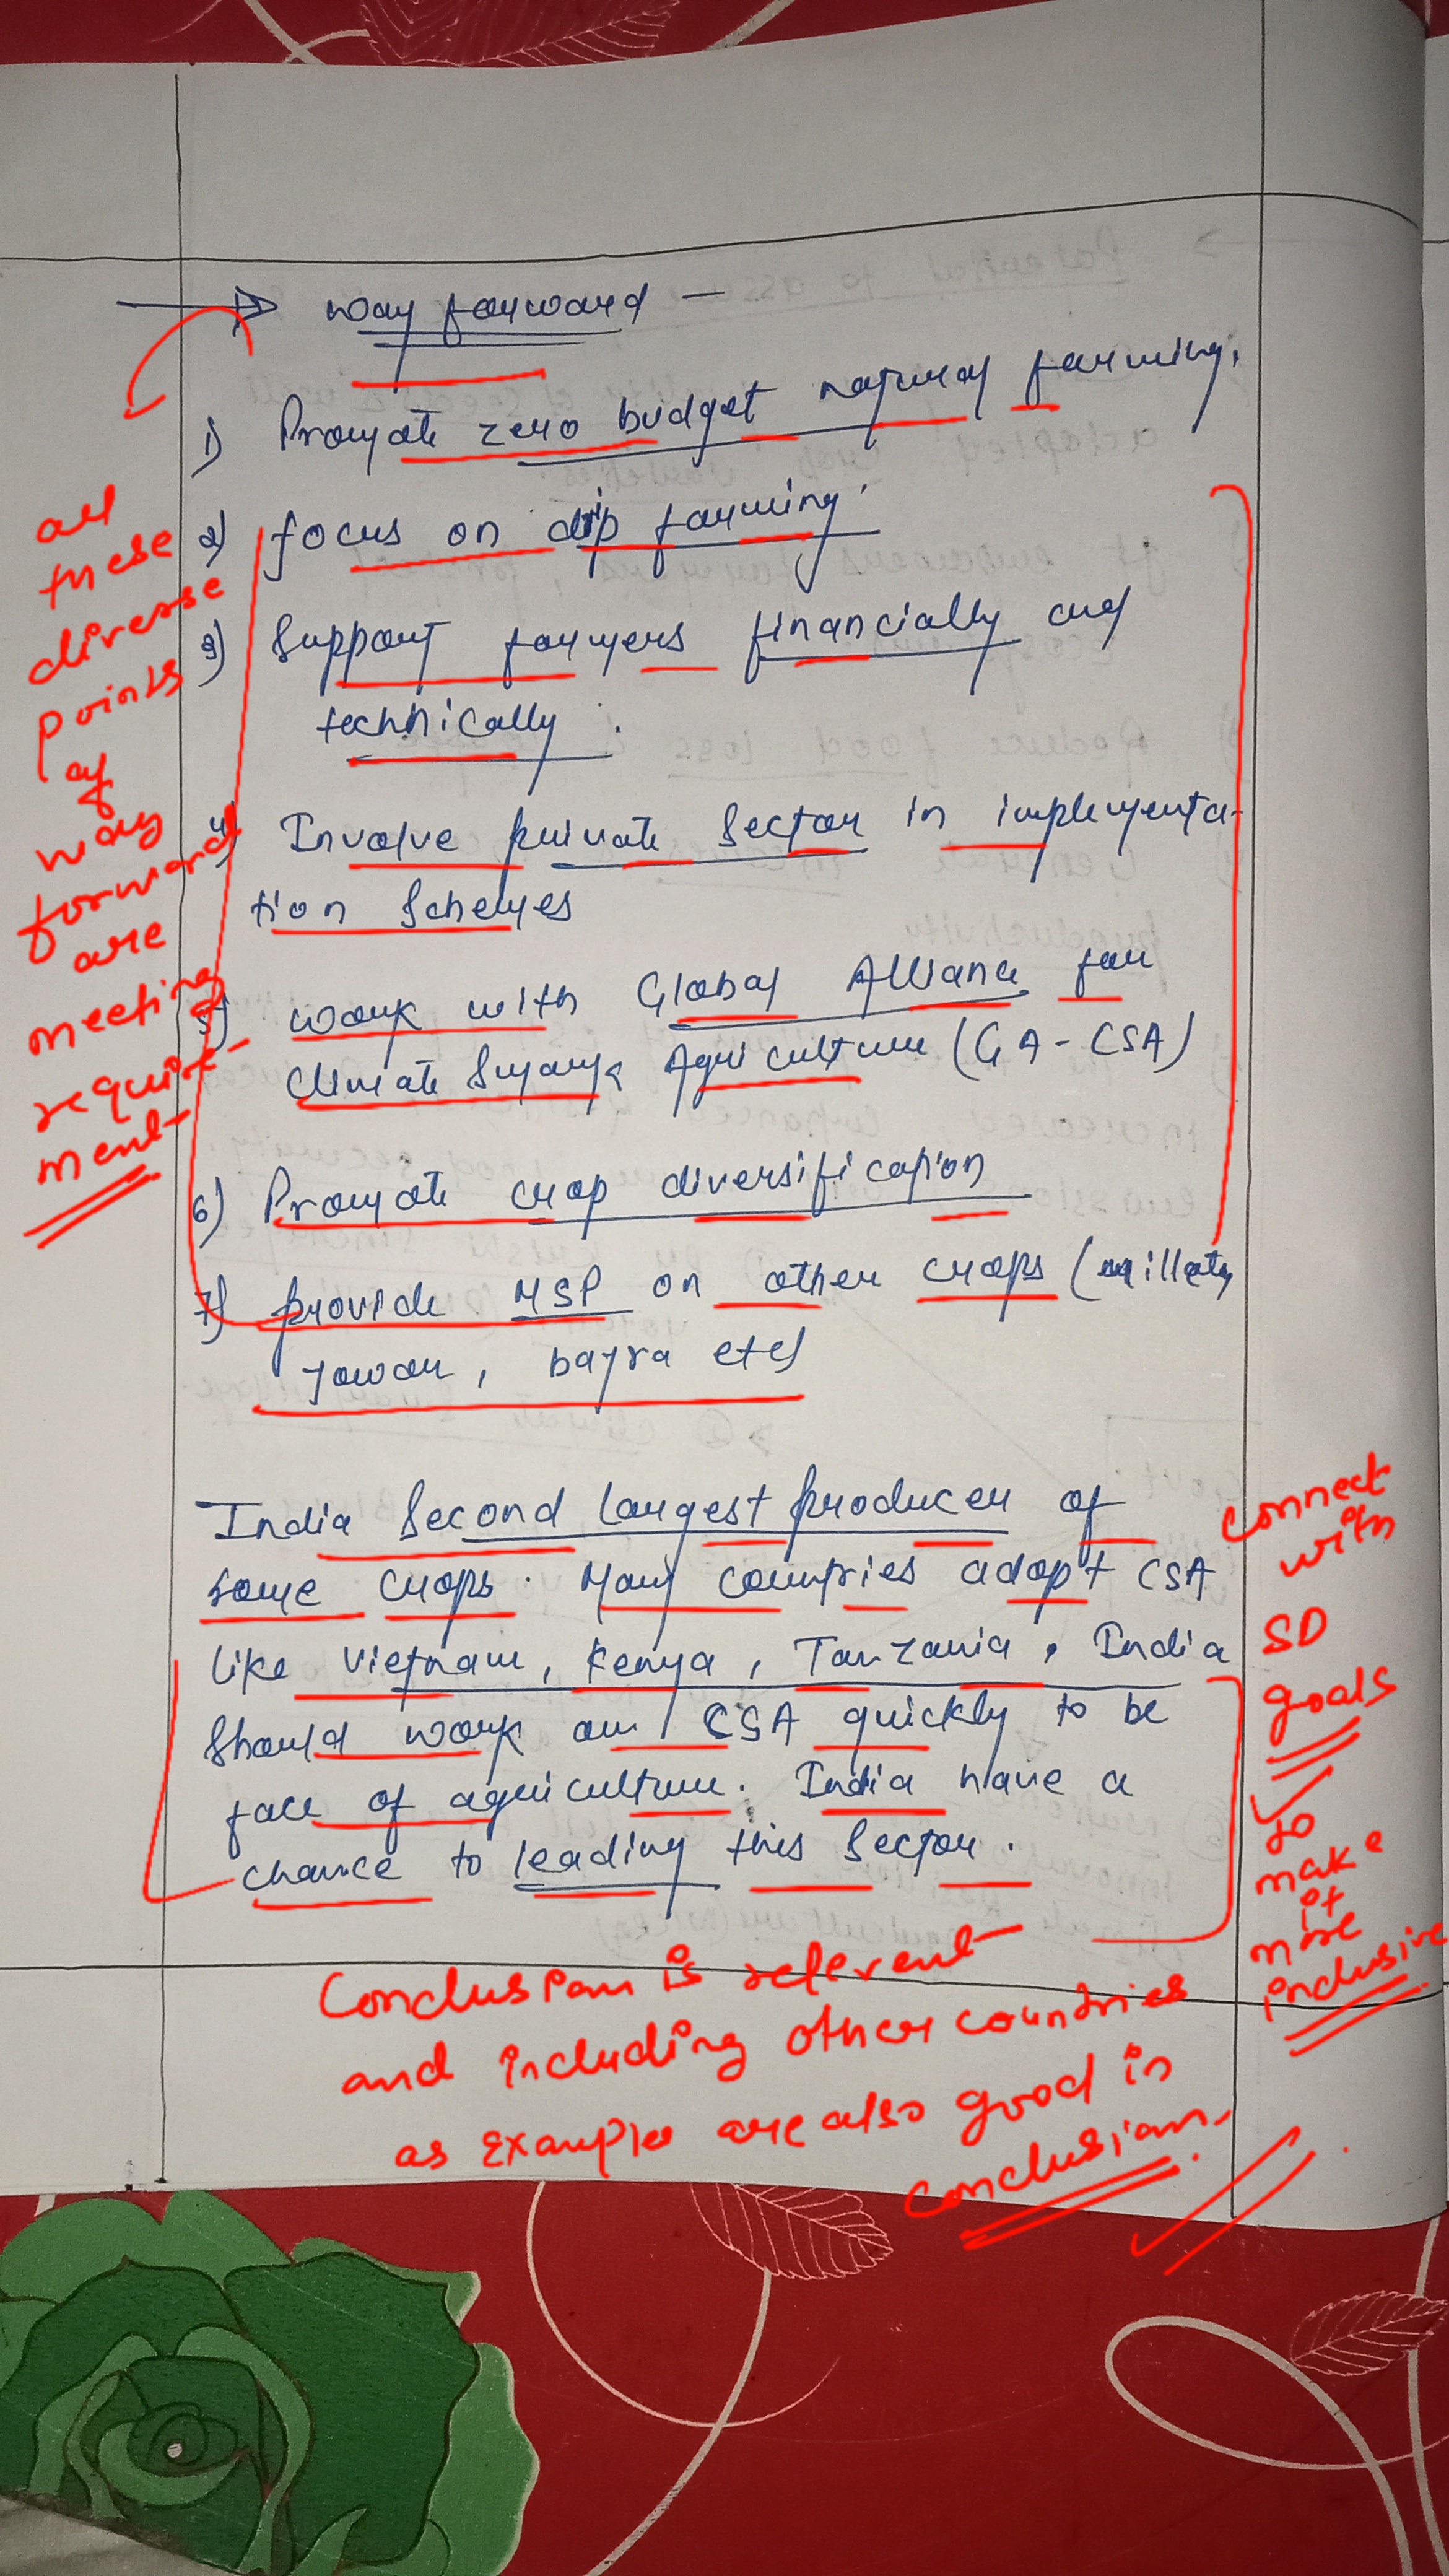 Way forward -
1) Promote zero budget natural farming.
2) focus on drip farming.
3) Support farmers financially and
technically.
4) Involve private sector in implementa-
tion Schemes
5) work with Global Alliance for
Climate Smart Agriculture (GA-CSA)
6) Promote crop diversification
7) provide MSP on other crops (millets,
jowar, bajra etc)
all
these
diverse
points
of
way
forward
are
meeting
require-
ment
India Second largest producer of
some crops. Many countries adopt CSA
like Vietnam, Kenya, Tanzania. India
should work on CSA quickly to be
face of agriculture. India have a
chance to leading this Sector.
connect
with
SD
goals
to
make
it
more
inclusive
Conclusion is relevent
and including other countries
as examples are also good in
conclusion.